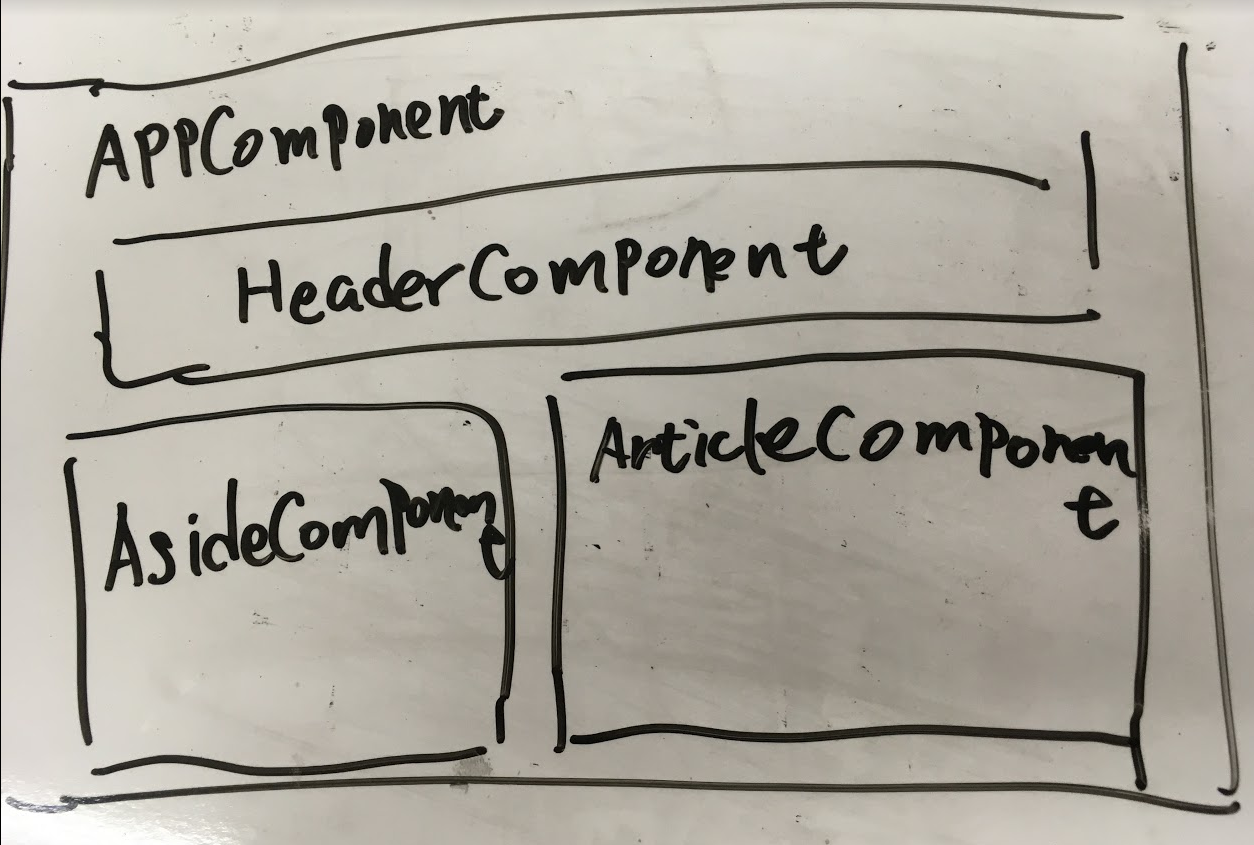 APPComponent
HeaderComponent
AsideComponent
ArticleComponent